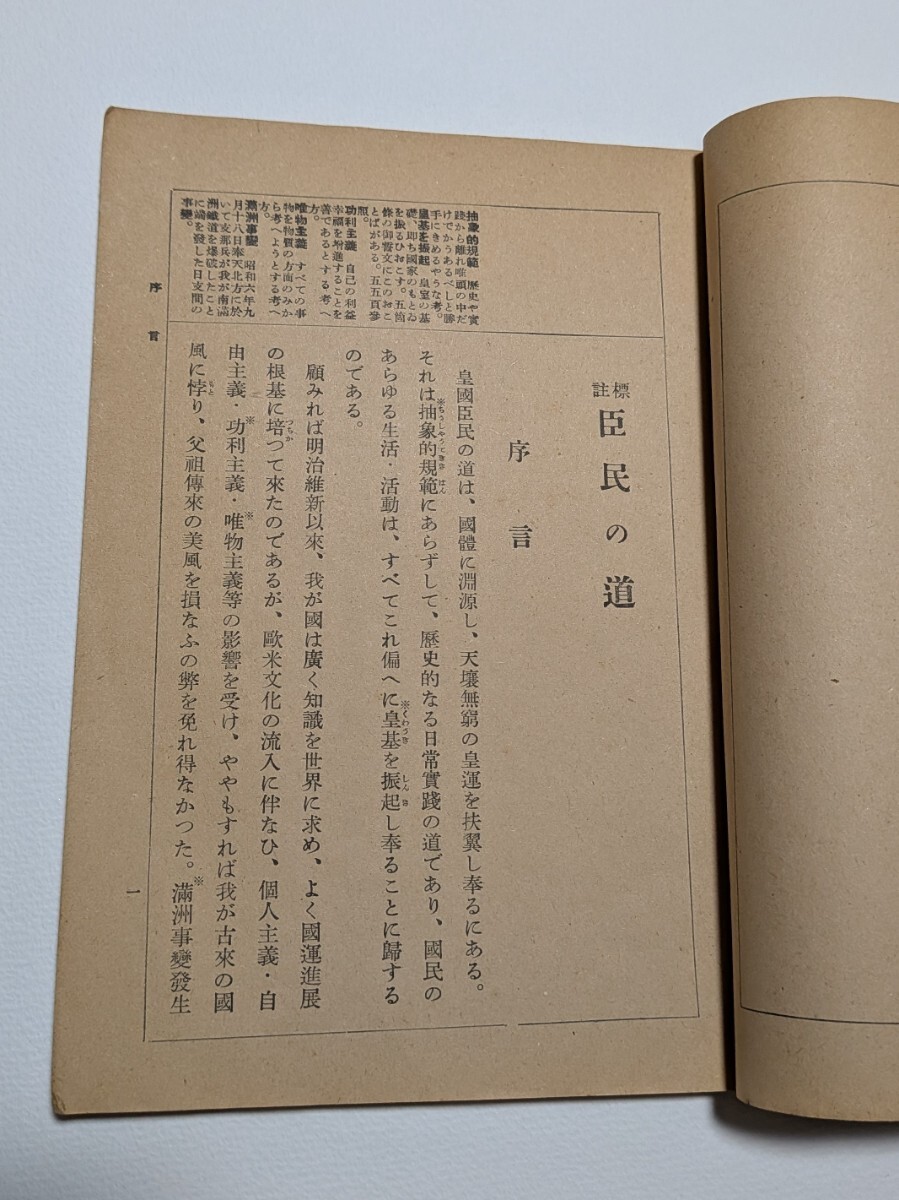 標註 臣民の道
序言
皇國臣民の道は、國體に淵源し、天壤無窮の皇運を扶翼し奉るにある。
それは※抽象的規範にあらずして、歷史的なる日常實踐の道であり、國民の
あらゆる生活・活動は、すべてこれ偏へに※皇基を振起し奉ることに歸する
のである。
顧みれば明治維新以來、我が國は廣く知識を世界に求め、よく國運進展
の根基に培つて來たのであるが、歐米文化の流入に伴なひ、個人主義・自
由主義・※功利主義・※唯物主義等の影響を受け、ややもすれば我が古來の國
風に悖り、父祖傳來の美風を損なふの弊を免れ得なかつた。※滿洲事變發生
抽象的規範 歷史や實
踐から離れ唯頭の中だ
けでかうあるべしと勝
手にきめるやうな考。
皇基を振起 皇室の基
礎、卽ち國家のもとゐ
を振ひおこす。五箇
條の御誓文にこのおこ
とばがある。五五頁參
照。
功利主義 自己の利益
幸福を增進することを
善であるとする考へ
方。
唯物主義 すべての事
物を物質の方面のみか
ら考へようとする考へ
方。
滿洲事變 昭和六年九
月十八日奉天北方に於
いて支那兵が我が南滿
洲鐵道を爆破したこと
に端を發した日支間の
事變。
序言
一